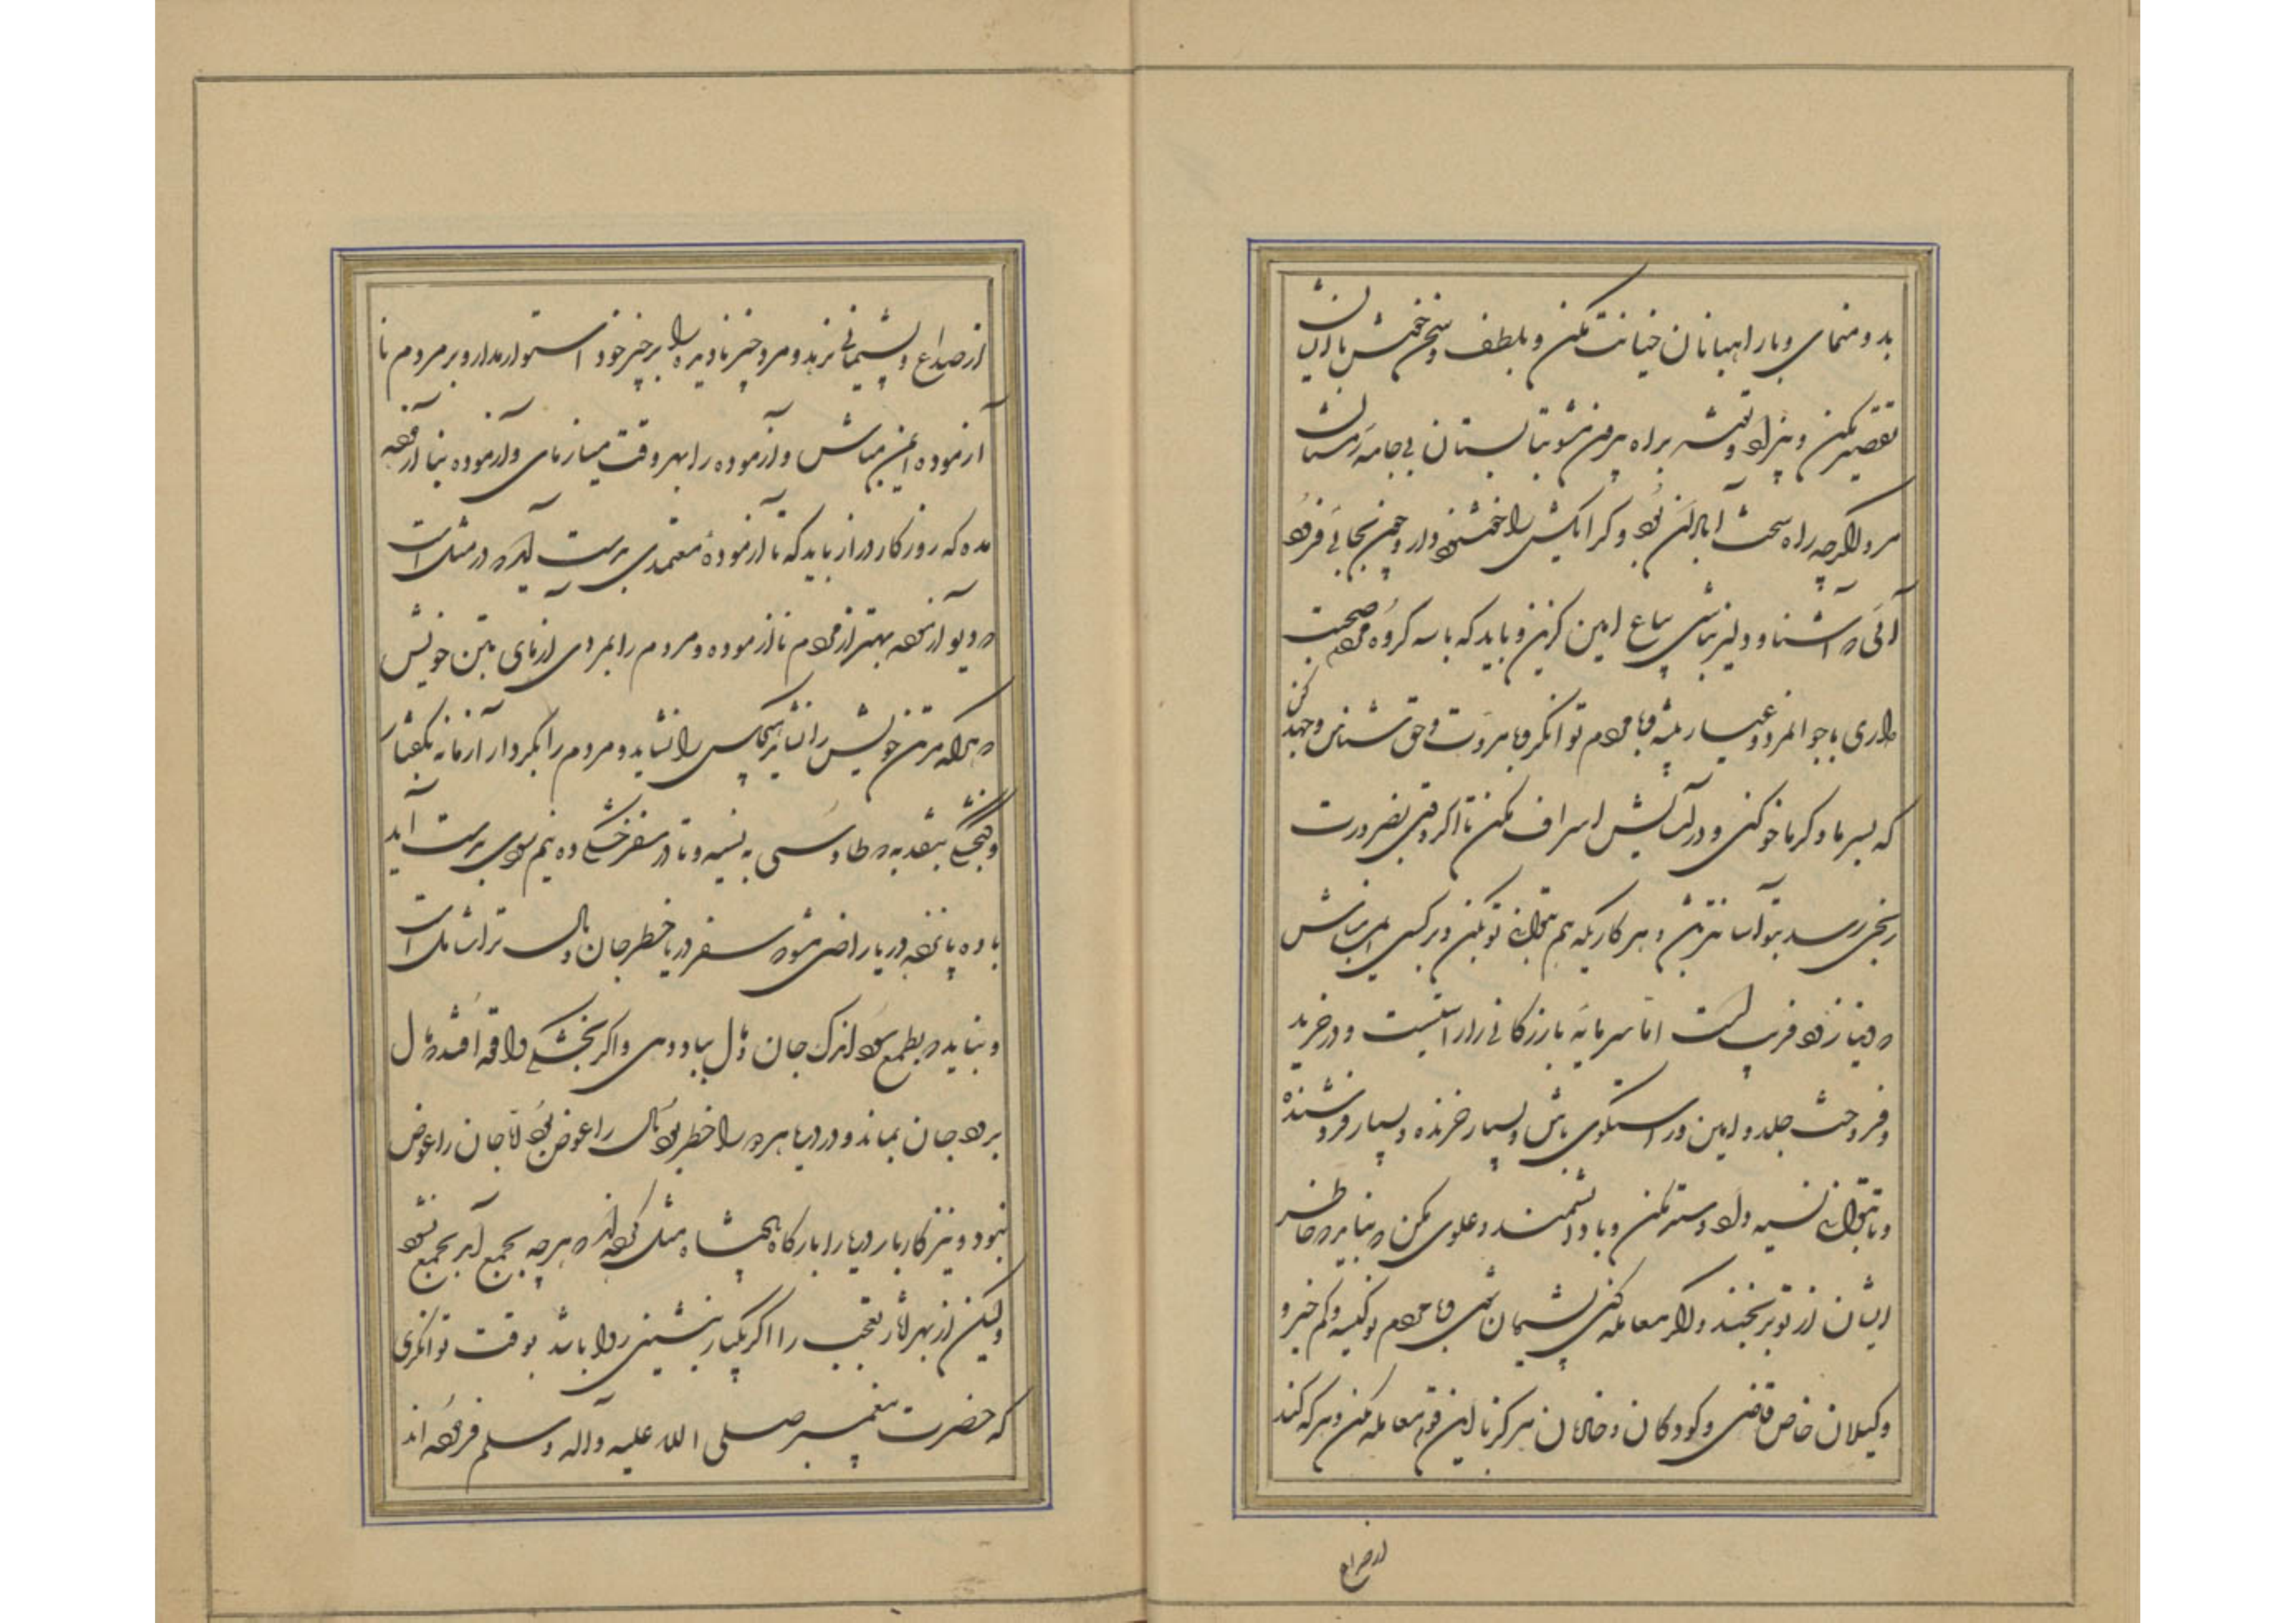 بدو منمای و با راهبانان خیانت مکن و بلطف و سخن خوش با ایشان
تقصیر مکن و بی زاد و توشه براه بیرون مشو بتابستان بی جامه زمستان
مرو اگرچه راه سخت آبادان بود و کرایکش را خوشنود دار و چون بجائی فرود
آئی که آشنا و دلیر نباشی بیاع امین گزین و باید که با سه گروه مردم صحبت
داری با جوانمرد و عیار پیشه و با مردم توانگر و با مروت و حق شناس و جهد کن
که بسرما و گرما خو کنی و در آسایش اسراف مکن تا اگر وقتی بضرورت
رنجی رسد بتو آسانتر باشد و هر کاریکه هم بتوانی تو بکن و بر کسی ایمن مباش
که دنیا زود فریب است اما سرمایه بازرگانی را راستیست و در خرید
و فروخت جلد و امین و راستگوی باش و بسیار خرنده و بسیار فروشنده
و تا بتوانی نسیه و داد و ستد مکن و با دانشمند و علوی مکن که نباید که خاطر
ایشان از تو برنجد و اگر معامله کنی پشیمان شوی و با مردم نوکیسه و کم خیر و
وکیلان خاص قاضی و کودکان و خادمان هرگز با این قوم معامله مکن و هر که کند
از صداع
از صداع و پشیمانی نرهد و مرد چیز نادیده را بر چیز خود استوار مدار و بر مردم نا
آزموده ایمن مباش و آزموده را بهر وقت میازمای و آزموده بنا آزموده
مده که روزگار دراز باید که تا آزمودهٔ معتمدی بدست آید که در مثل است
که دیو آزموده بهتر از مردم ناآزموده و مردم را بمردم آزمای بتن خویش
که هر آنکه مر تن خویش را نشاید هیچکس را نشاید و مردم را بکردار آزما نه بگفتار
و گنجشگی بنقد به که طاوسی به نسیه و تا در سفر خشکی ده نیم سود بدست آید
با ده پانزده دریا راضی مشو که سفر دریا خطر جان و مال ترا شامل است
و نباید که بطمع سود اندک جان و مال بباد دهی و اگر بخشکی واقعه افتد که مال
برود جان بماند و در دریا هر دو را خطر بود مال را عوض بود اما جان را عوض
نبود و نیز کار بار دریا را بار گاه پادشاه مثل کرده اند که هر چه بجمع آید بجمع شود
ولیکن از بهر آثار تعجب را اگر یکبار بنشینی روا باشد بوقت توانگری
که حضرت پیغمبر صلی الله علیه وآله وسلم فرموده اند